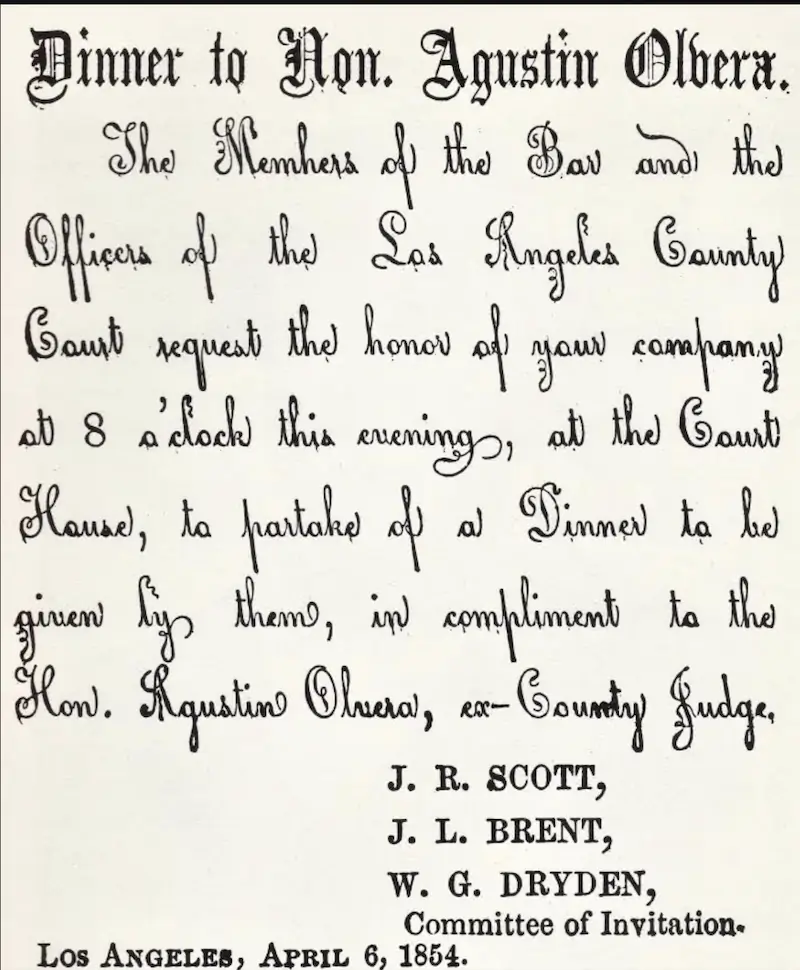 Dinner to Hon. Agustin Olvera.
The Members of the Bar and the
Officers of the Los Angeles County
Court request the honor of your company
at 8 o'clock this evening, at the Court
House, to partake of a Dinner to be
given by them, in compliment to the
Hon. Agustin Olvera, ex-County Judge.
J. R. SCOTT,
J. L. BRENT,
W. G. DRYDEN,
Committee of Invitation.
LOS ANGELES, APRIL 6, 1854.